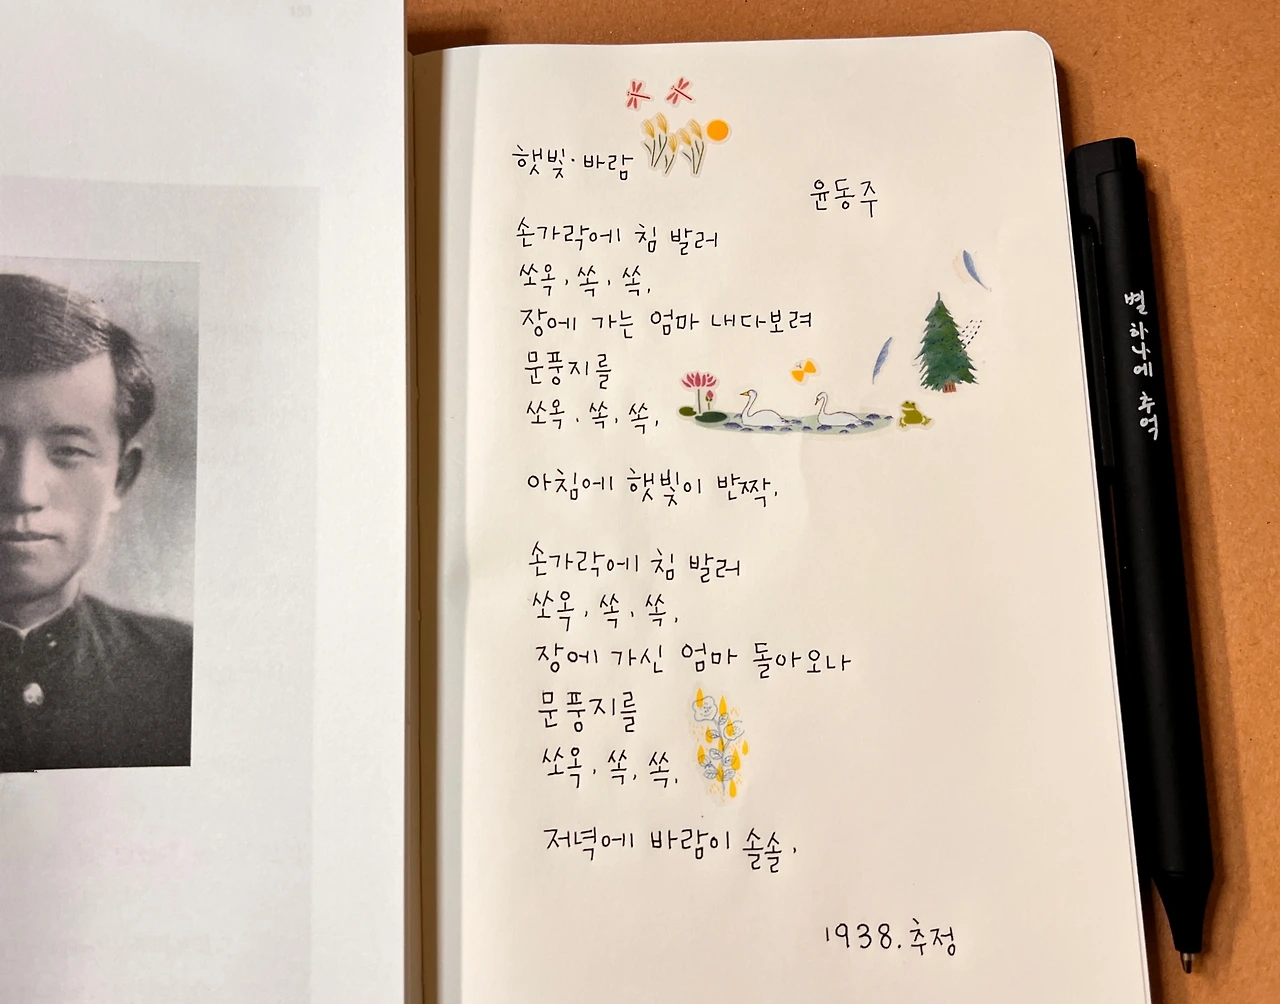 햇빛·바람
윤동주
손가락에 침 발러
쏘옥, 쏙, 쏙,
장에 가는 엄마 내다보려
문풍지를
쏘옥, 쏙, 쏙,
아침에 햇빛이 반짝,
손가락에 침 발러
쏘옥, 쏙, 쏙,
장에 가신 엄마 돌아오나
문풍지를
쏘옥, 쏙, 쏙,
저녁에 바람이 솔솔,
1938. 추정
별 하나에 추억